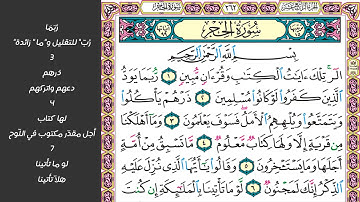 سُورَةُ الحِجْرِ
٢٦٢
بِسْمِ اللَّهِ الرَّحْمَٰنِ الرَّحِيمِ
الٓر تِلْكَ ءَايَٰتُ ٱلْكِتَٰبِ وَقُرْءَانٍ مُّبِينٍ ١ رُّبَمَا يَوَدُّ
ٱلَّذِينَ كَفَرُوا۟ لَوْ كَانُوا۟ مُسْلِمِينَ ٢ ذَرْهُمْ يَأْكُلُوا۟
وَيَتَمَتَّعُوا۟ وَيُلْهِهِمُ ٱلْأَمَلُ فَسَوْفَ يَعْلَمُونَ ٣ وَمَآ أَهْلَكْنَا
مِن قَرْيَةٍ إِلَّا وَلَهَا كِتَابٌ مَّعْلُومٌ ٤ مَّا تَسْبِقُ مِنْ أُمَّةٍ
أَجَلَهَا وَمَا يَسْتَـْٔخِرُونَ ٥ وَقَالُوا۟ يَٰٓأَيُّهَا ٱلَّذِى نُزِّلَ عَلَيْهِ
ٱلذِّكْرُ إِنَّكَ لَمَجْنُونٌ ٦ لَّوْ مَا تَأْتِينَا بِٱلْمَلَٰٓئِكَةِ إِن كُنتَ
رُبَمَا
رُبّ" للتقليل و"ما" زائدة"
3
ذرهم
دعهم واتركهم
4
لها كتاب
أجل مقدّر مكتوب في اللّوح
7
لو ما تأتينا
هلّا تأتينا